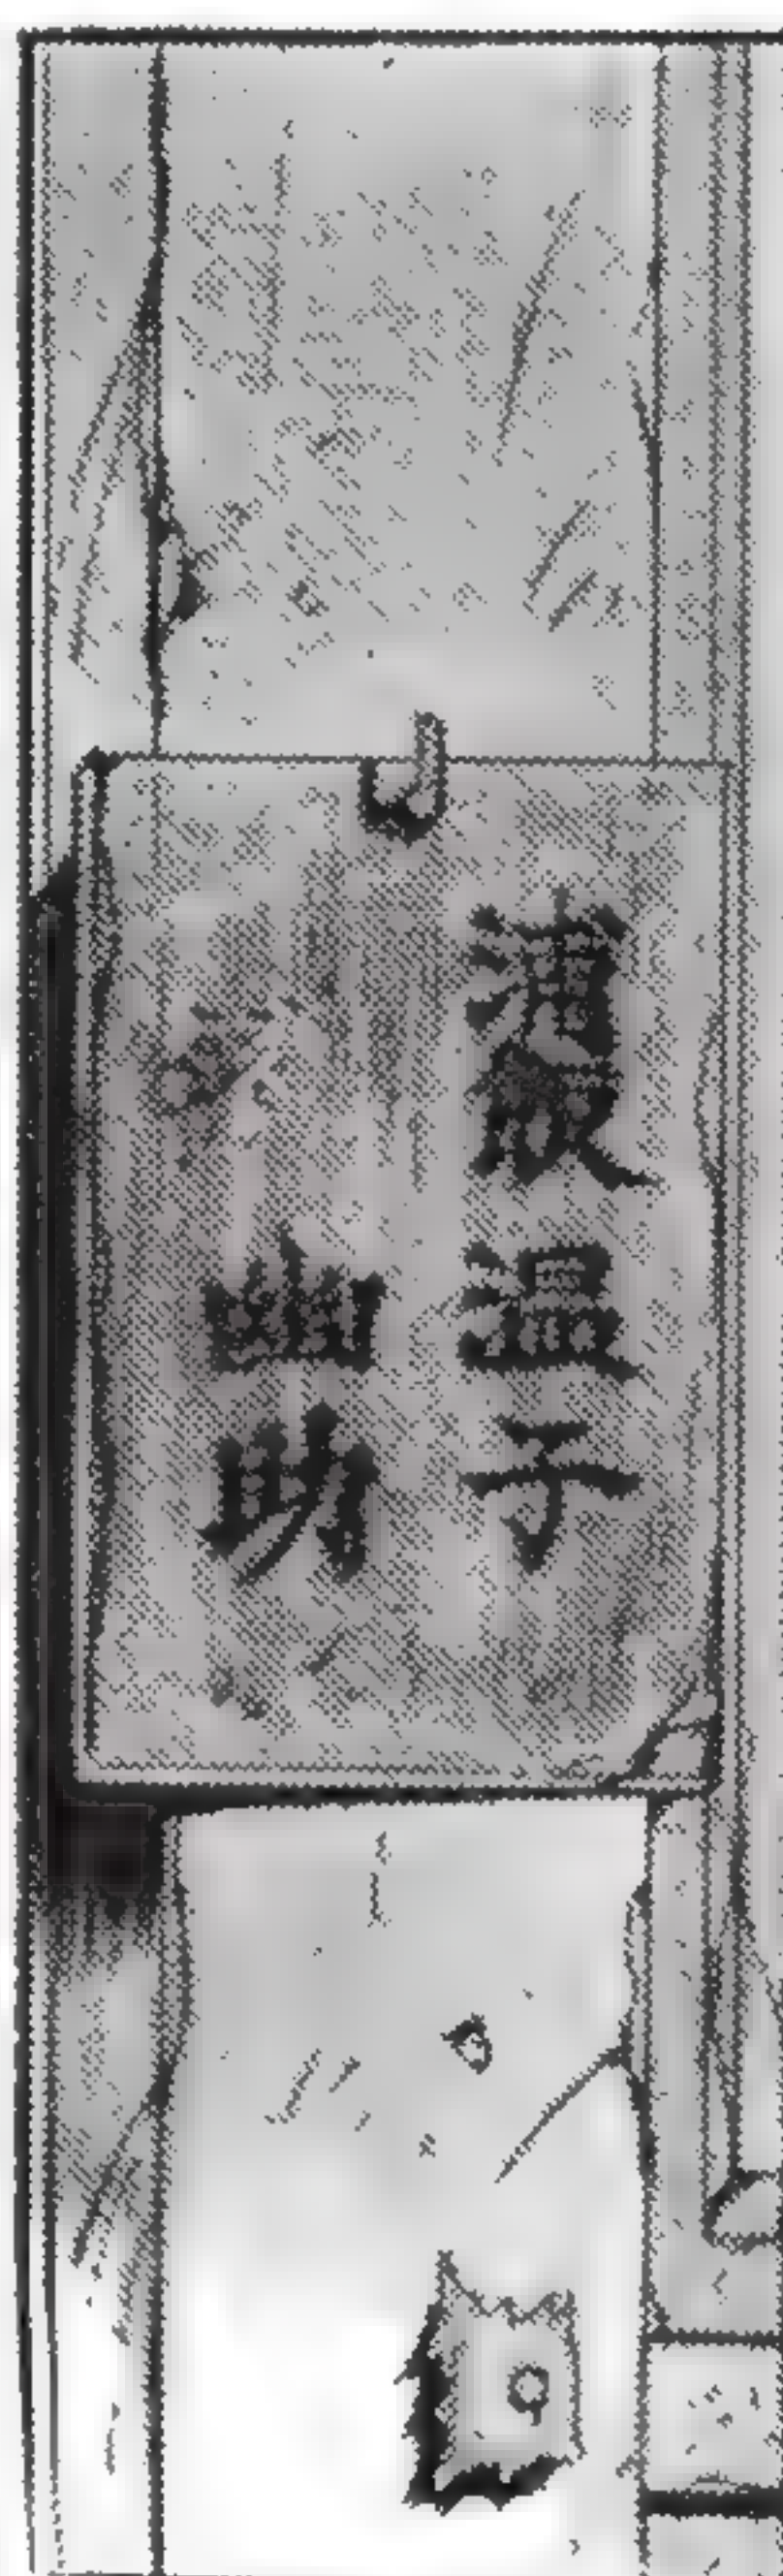 浦飯温子
幽助